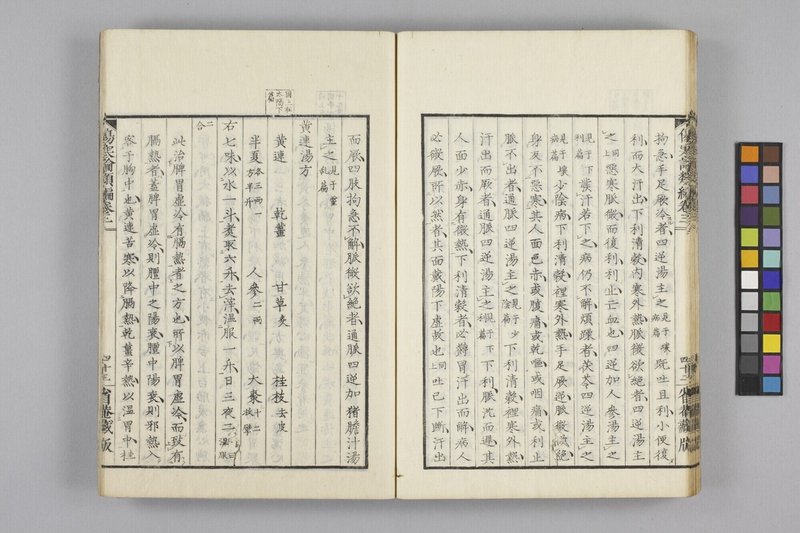 拘急手足厥冷者四逆湯主之見于壊病篇既吐且利小便復
利而大汗出下利清穀内寒外熱脈微欲絶者四逆湯主
之同上悪寒脈微而復利利止亡血也四逆加人参湯主之
見于下利篇發汗若下之病仍不解煩躁者茯苓四逆湯主之
見于壊病篇少陰病下利清穀裡寒外熱手足厥逆脈微欲絶
身反不悪寒其人面色赤或腹痛或乾嘔或咽痛或利止
脈不出者通脈四逆湯主之見于少陰篇下利清穀裡寒外熱
汗出而厥者通脈四逆湯主之見于下利篇下利脈沈而遲其
人面少赤身有微熱下利清穀者必鬱冒汗出而解病人
必微厥所以然者其面戴陽下虚故也同上吐已下断汗出
四十二
省菴蔵版
而厥四肢拘急不解脈微欲絶者通脈四逆加猪膽汁湯
主之見于霍乱篇
黄連湯方
黄連 乾薑 甘草炙 桂枝去皮
半夏 人參二兩 大棗十二枚擘
右七味以水一斗煮取六升去滓温服一升日三夜二
此治脾胃虚冷有膈熱者之方也所以脾胃虚冷而致有
膈熱者蓋脾胃虚冷則膻中之陽衰膻中陽衰則邪熱入
客于胸中也黄連苦寒以降膈熱乾薑辛熱以温胃中桂
四十三
省菴蔵版